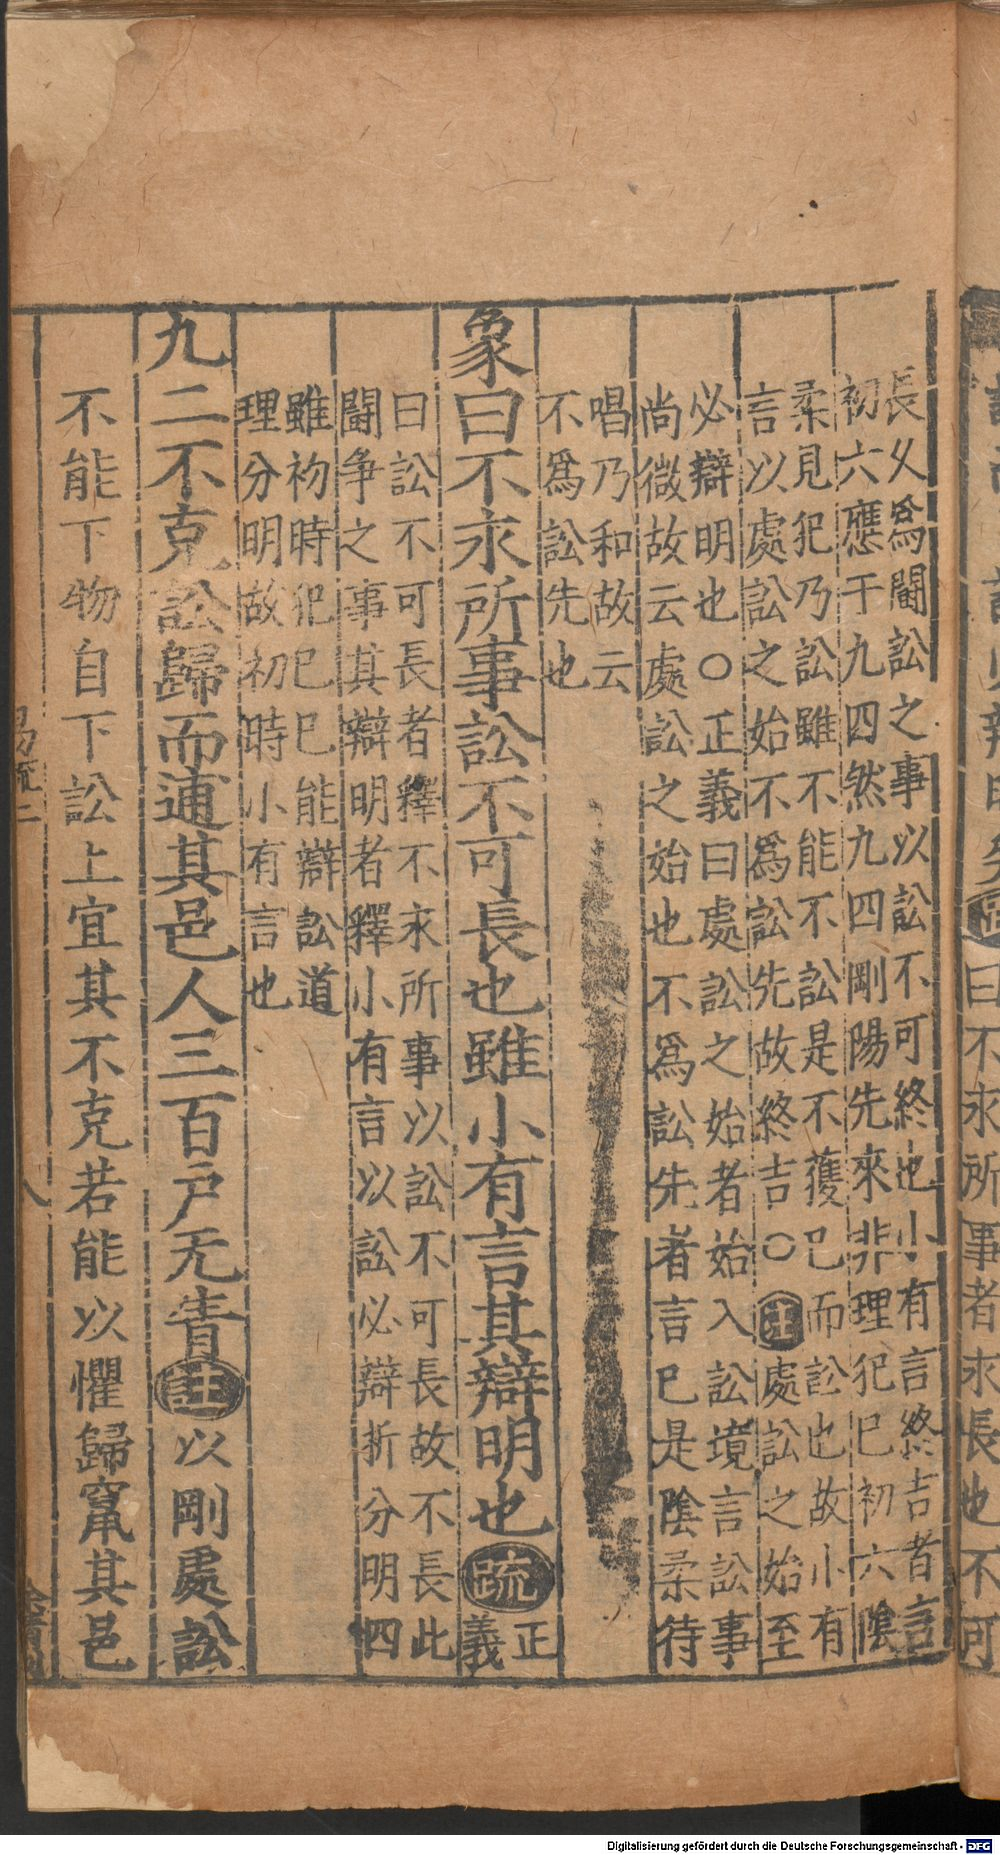 曰不求所事者求長也不可
長乆爲鬭訟之事以訟不可終也小有言終吉者言
初六應于九四然九四剛陽先來非理犯已初六陰
柔見犯乃訟雖不能不訟是不獲已而訟也故小有
言以處訟之始不爲訟先故終吉○註處訟之始至
必辯明也○正義曰處訟之始者始入訟境言訟事
尚微故云處訟之始也不爲訟先者言已是陰柔待
唱乃和故云
不爲訟先也
象曰不永所事訟不可長也雖小有言其辯明也疏正義
曰訟不可長者釋不永所事以訟不可長故不長此
鬭争之事其辯明者釋小有言以訟必辯折分明四
雖初時犯已已能辯訟道
理分明故初時小有言也
九二不克訟歸而逋其邑人三百户无眚註以剛處訟
不能下物自下訟上宜其不克若能以懼歸竄其邑
易疏二
八
Digitalisierung gefördert durch die Deutsche Forschungsgemeinschaft - DFG